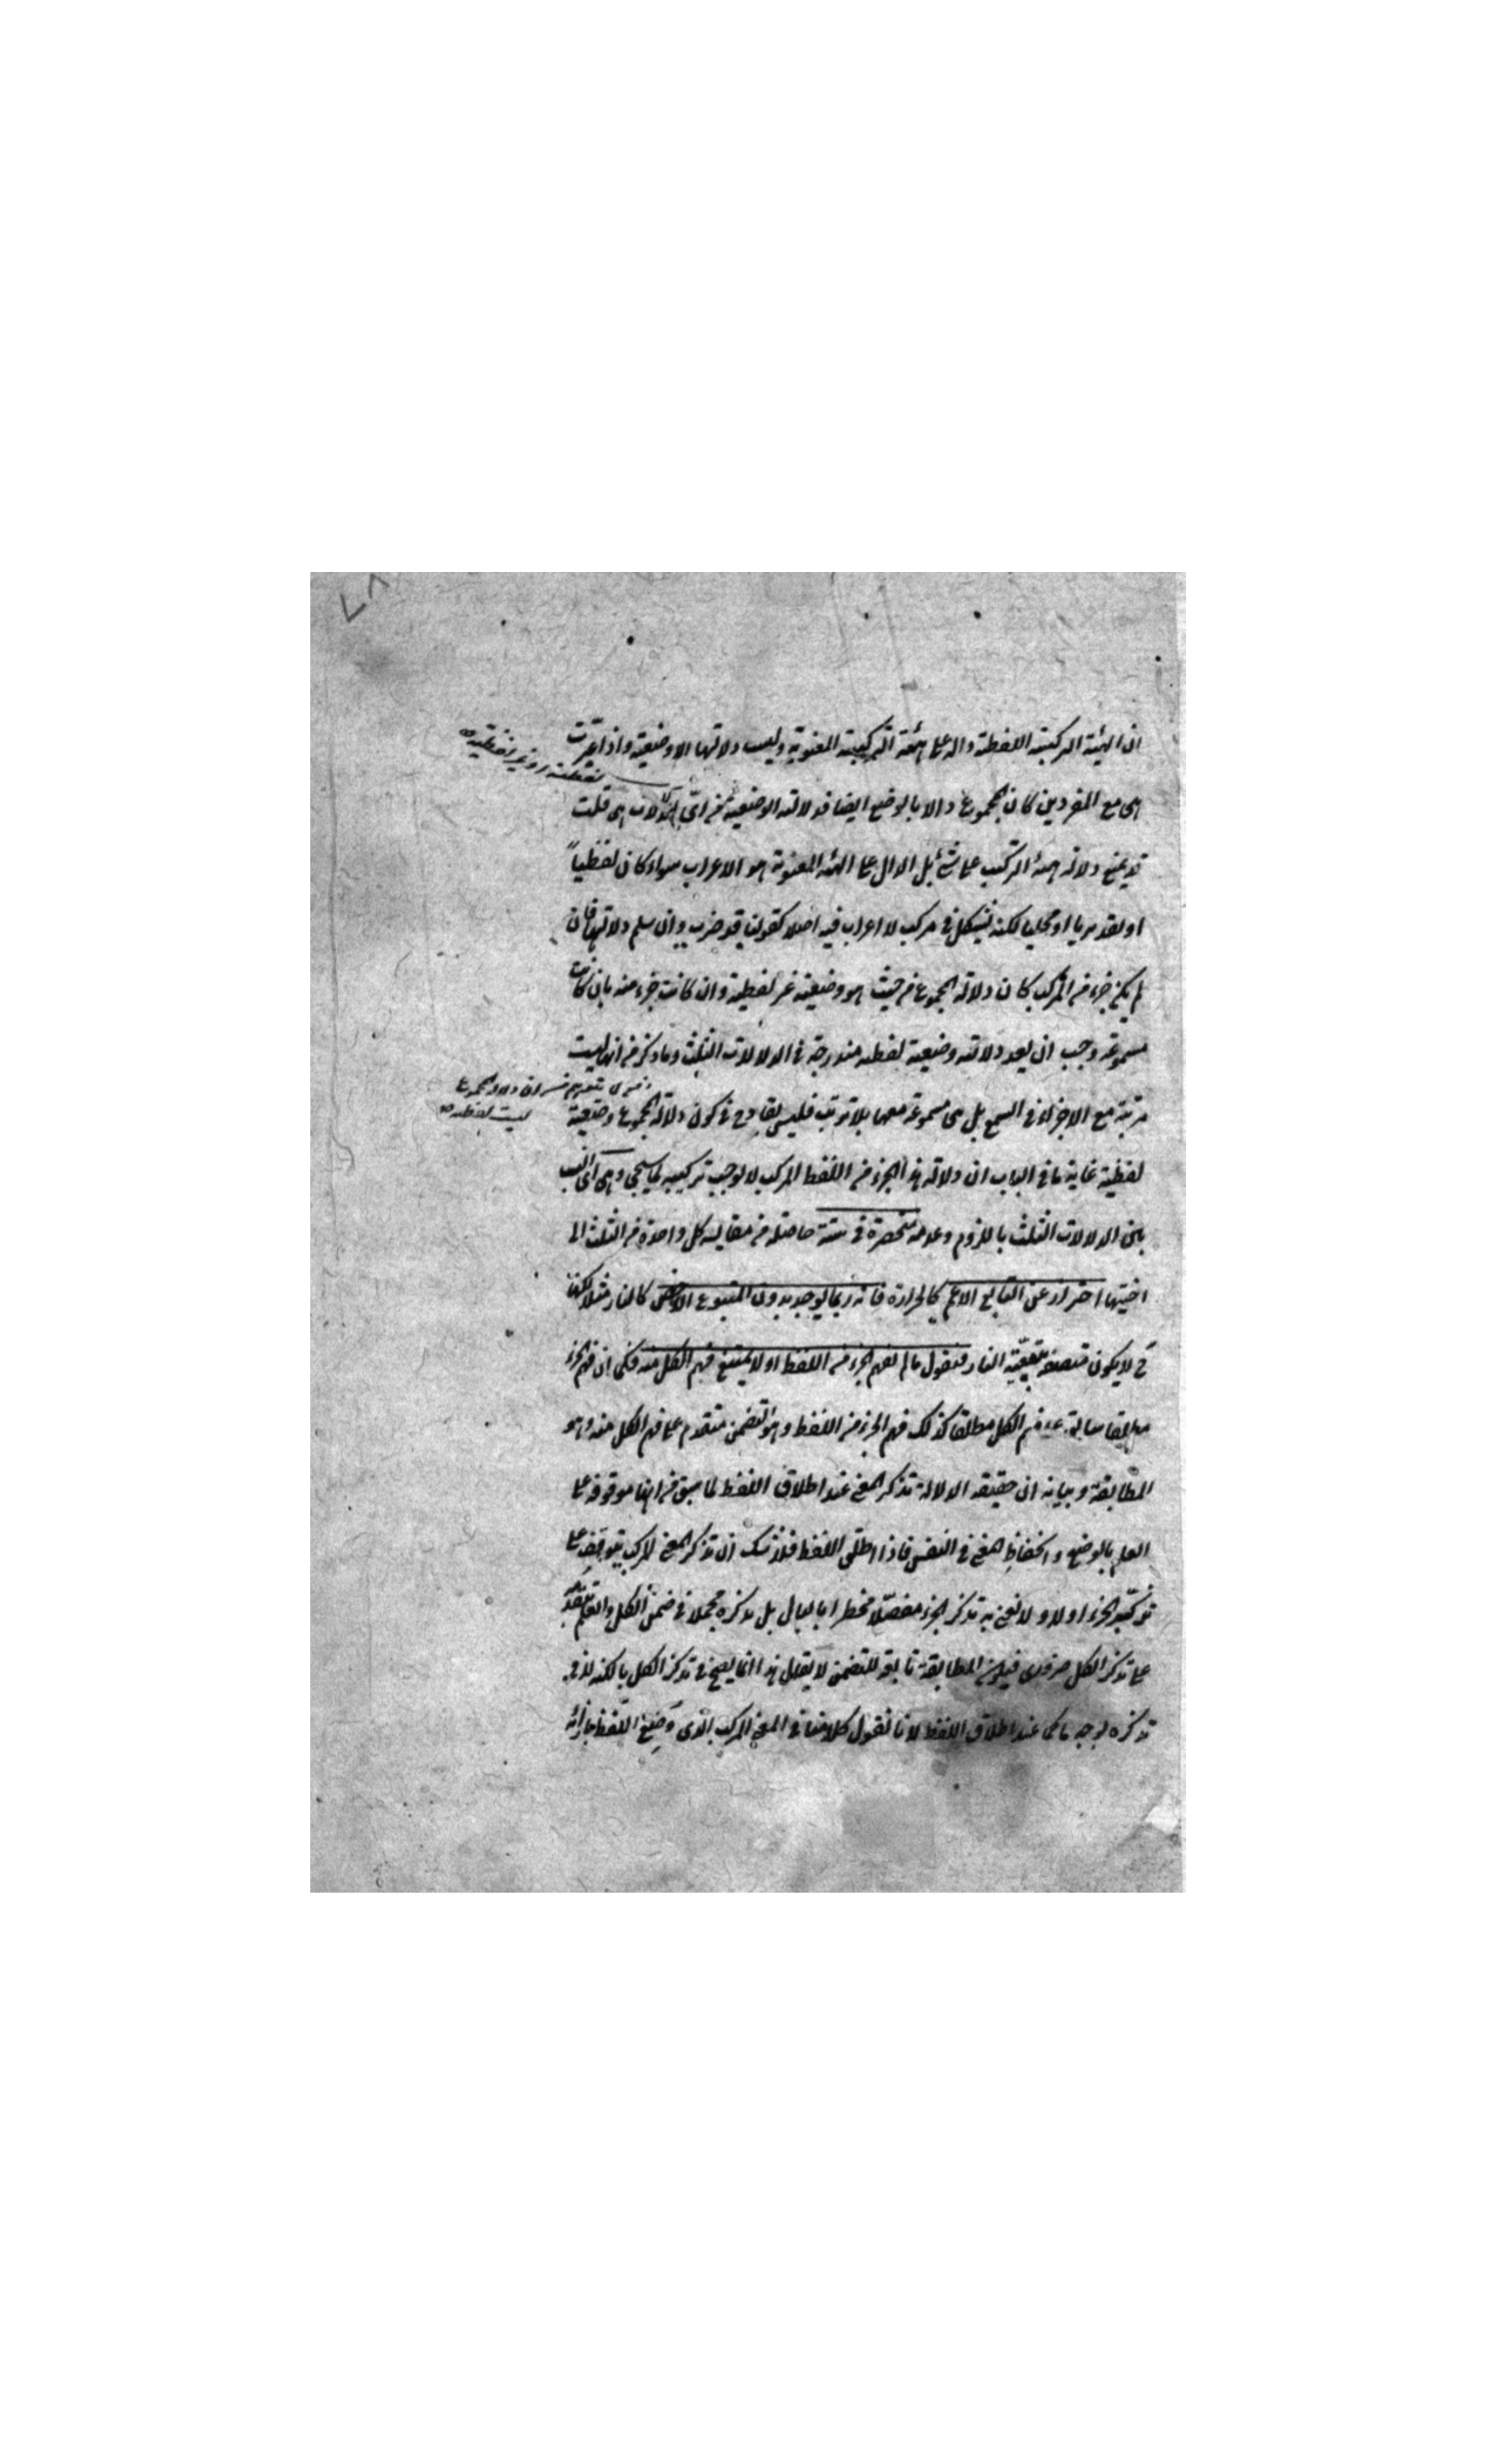 ان الهيئة التركيبية اللفظية دالة على الهيئة التركيبية المعنوية وليست دلالتها الا وضعية واذا اعتبرت
هى مع المفردين كان المجموع دالا بالوضع ايضا فدلالته الوضعية من اى الدلالات هى قلت
قد يمنع دلالة هيئة التركيب على شئ بل الدال على الهيئة المعنوية هو الاعراب سواء كان لفظياً
او تقديريا او محليا لكنه يشكل فى مركب لا اعراب فيه اصلا كقولك قد ضرب وان سلم دلالتها فان
لم يكن جزء من المركب كان دلالة المجموع من حيث هو وضعية غير لفظية وان كانت جزء منه بان كانت
مسموعة وجب ان يعد دلالته وضعية لفظية مندرجة فى الدلالات الثلث وما ذكر من انها ليست
مرتبة مع الاجزاء فى السمع بل هى مسموعة معها بلا ترتب فليس بقادح فى كون دلالة المجموع وضعية
ليست لفظية
لفظية غاية ما فى الباب ان دلالة هذا الجزء من اللفظ المركب لا يوجب تركيبه كما سيجئ وهى اى النسب
بين الدلالات الثلث باللزوم وعدمه منحصرة فى ستة حاصلة من مقايسة كل واحدة من الثلث الى
اختيها احتراز عن التابع الاعم كالحرارة فانه ربما يوجد بدون المتبوع الاخص كالنار مثلا لكنها
ح لا يكون متصفة بتبعية النار فنقول ما لم يفهم الجزء من اللفظ اولا يمتنع فهم الكل منه فكما ان فهم الجزء
مطلقا سابق على فهم الكل مطلقا كذلك فهم الجزء من اللفظ وهو التضمن متقدم على فهم الكل منه وهو
المطابقة وبيانه ان حقيقة الدلالة تذكر المعنى عند اطلاق اللفظ لما سبق من انها موقوفة على
العلم بالوضع وانحفاظ المعنى فى النفس فاذا اطلق اللفظ فلا شك ان تذكر المعنى المركب يتوقف على
تذكر الجزء اولا ولا نعنى به تذكر الجزء مفصلا مخطرا بالبال بل تذكره مجملا فى ضمن الكل والعلم بتقدمه
على تذكر الكل ضرورى فيكون المطابقة تابعة للتضمن لا يقال هذا انما يصح فى تذكر الكل بالكنه لا فى
تذكره بوجه ما كما عند اطلاق اللفظ لانا نقول كلامنا فى المعنى المركب الذى وضع اللفظ بازائه